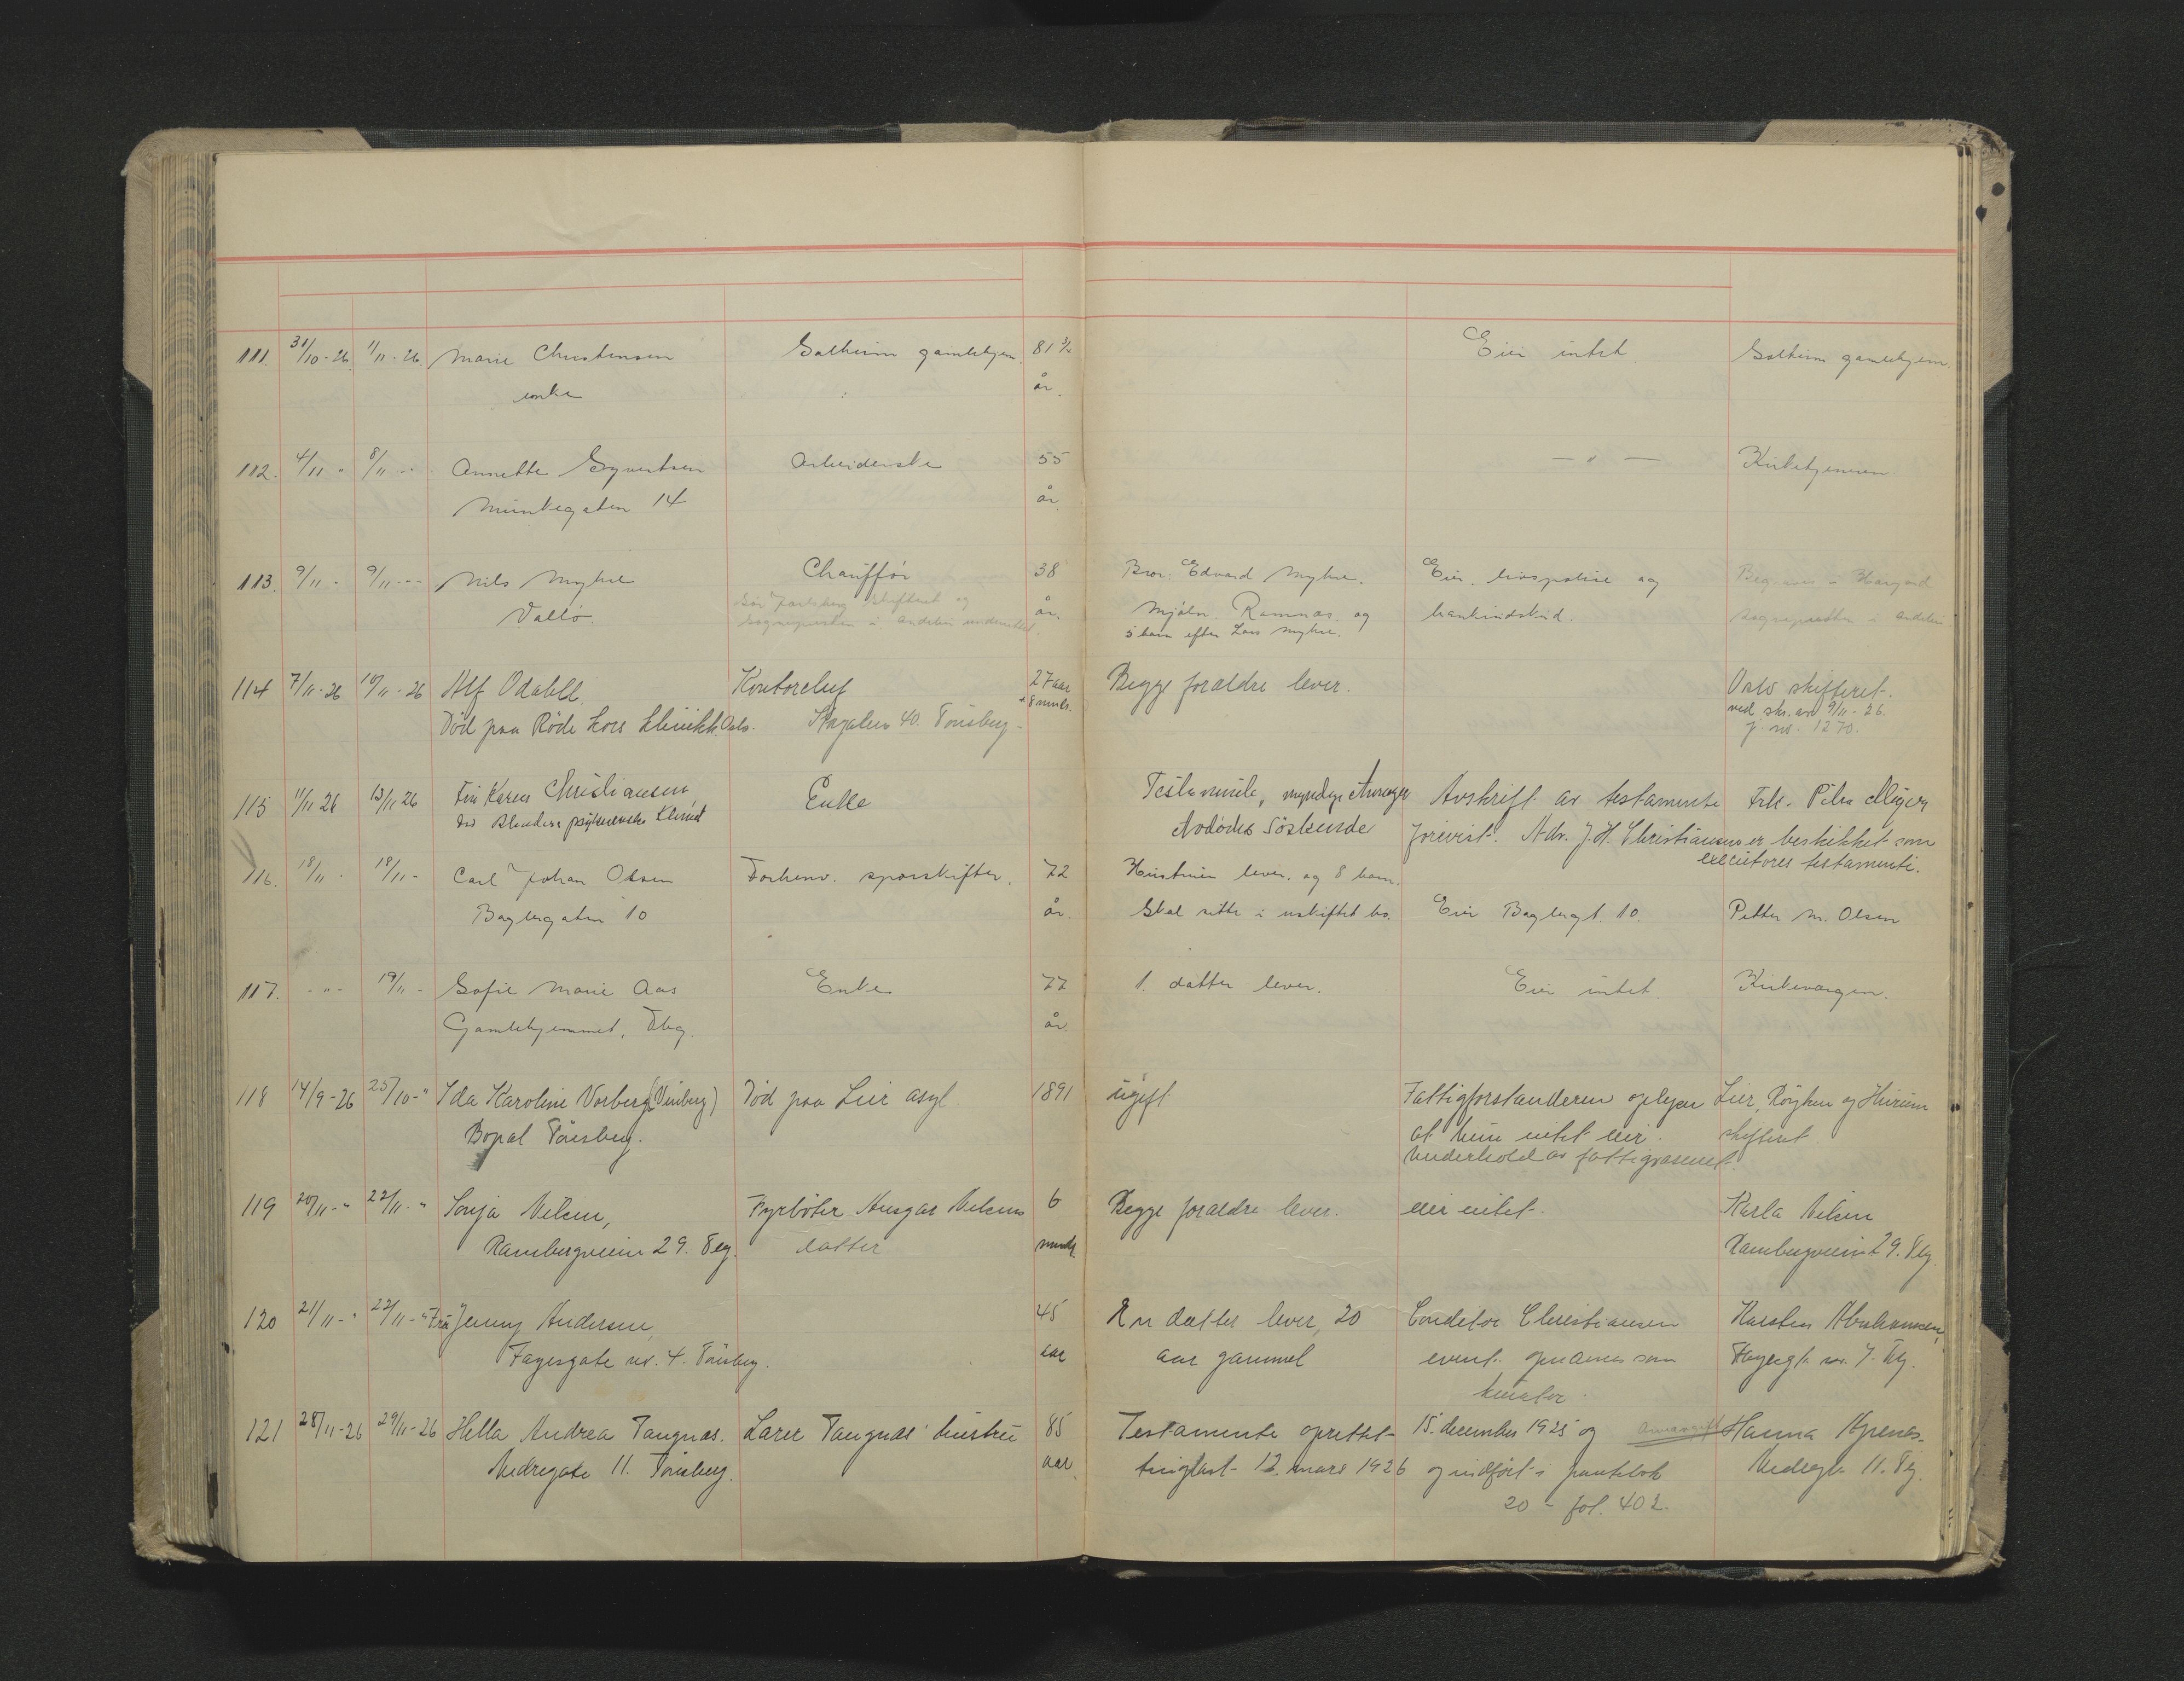 111. 31/10-26. 1/11-26. Marie Christensen Solheim gamlehjem. 81½ Eier intet Solheim gamlehjem.
enke år.
112. 4/11 " 8/11 " Annette Syvertsen Arbeiderske 55 — " — Kirketjeneren
Munkegaten 14 år.
113. 9/11 - 9/11 - - Nils Myhre Chauffør 38 Bror: Edvard Myhre. Eier livspolise og
Vallø sognepresten i Andebu underrettet. år. Ramnes og bankindskud. sognepresten i Andebu
5 barn efter Lars Myhre.
114 7/11-26 10/11-26 Alf Odahll Kontorchef 27 aar Begge forældre lever. Oslo skifteret.
+ 8 mndr. ved skr. av 9/11-26.
Død paa Røde Kors Klinikk. Oslo. 40. Tønsberg - j. no. 1270.
115 11/11 26 13/11 26 Karen Christiansen Enke Testamente, myndige Arvinger Avskrift av testamente Frk. Meyer
Avdødes Søskende forevist. Adv. J. H. Christiansen er beskikket som
executores testamenti.
116. 18/11 - 18/11 - Carl Johan Olsen Forhenv. sporskifter. 72 Hustruen lever. og 8 barn.
Baglergaten 10 år. Skal sitte i uskiftet bo. Eier Baglergt. 10. Petter M. Olsen
117. - " - 19/11 - Sofie Marie Aas Enke 77 1. datter lever. Eier intet. Kirkevergen.
Gamlehjemmet, Tbg. år.
118 14/9-26 25/10-" Ida Karoline Vorberg (Vinberg) Død paa Lier asyl. 1891 ugift Fattigforstanderen oplyser Lier, Røyken og Hurum
Bopæl Tønsberg. at hun intet eier. skifteret.
Underhold av fattigvæsenet.
119 20/11-" 22/11-" Sonja Nilsen, Fyrbøter Ansgar Nilsens 6 Begge forældre lever. eier intet. Karla Nilsen
Rambergveien 29. Tbg. datter mndr. Rambergveien 29. Tbg.
120 21/11-" 22/11-" Fru Jenny Andersen, 45 En datter lever, 20 Conditor Christiansen Karsten Abrahamsen,
Fayesgate no. 4. Tønsberg. aar aar gammel event. opnævnes som Fayegt. no. 7. Tbg.
kurator.
121 28/11-26 29/11-26 Hella Andrea Tangnæs. Lars Tangnæs' hustru 85 Testamente oprettet 15. december 1925 og Hanna
Nedregate 11. Tønsberg. aar. tinglæst 12. mars 1926 og indført i pantebok Nedregt. 11. Tbg.
20 - fol. 402.